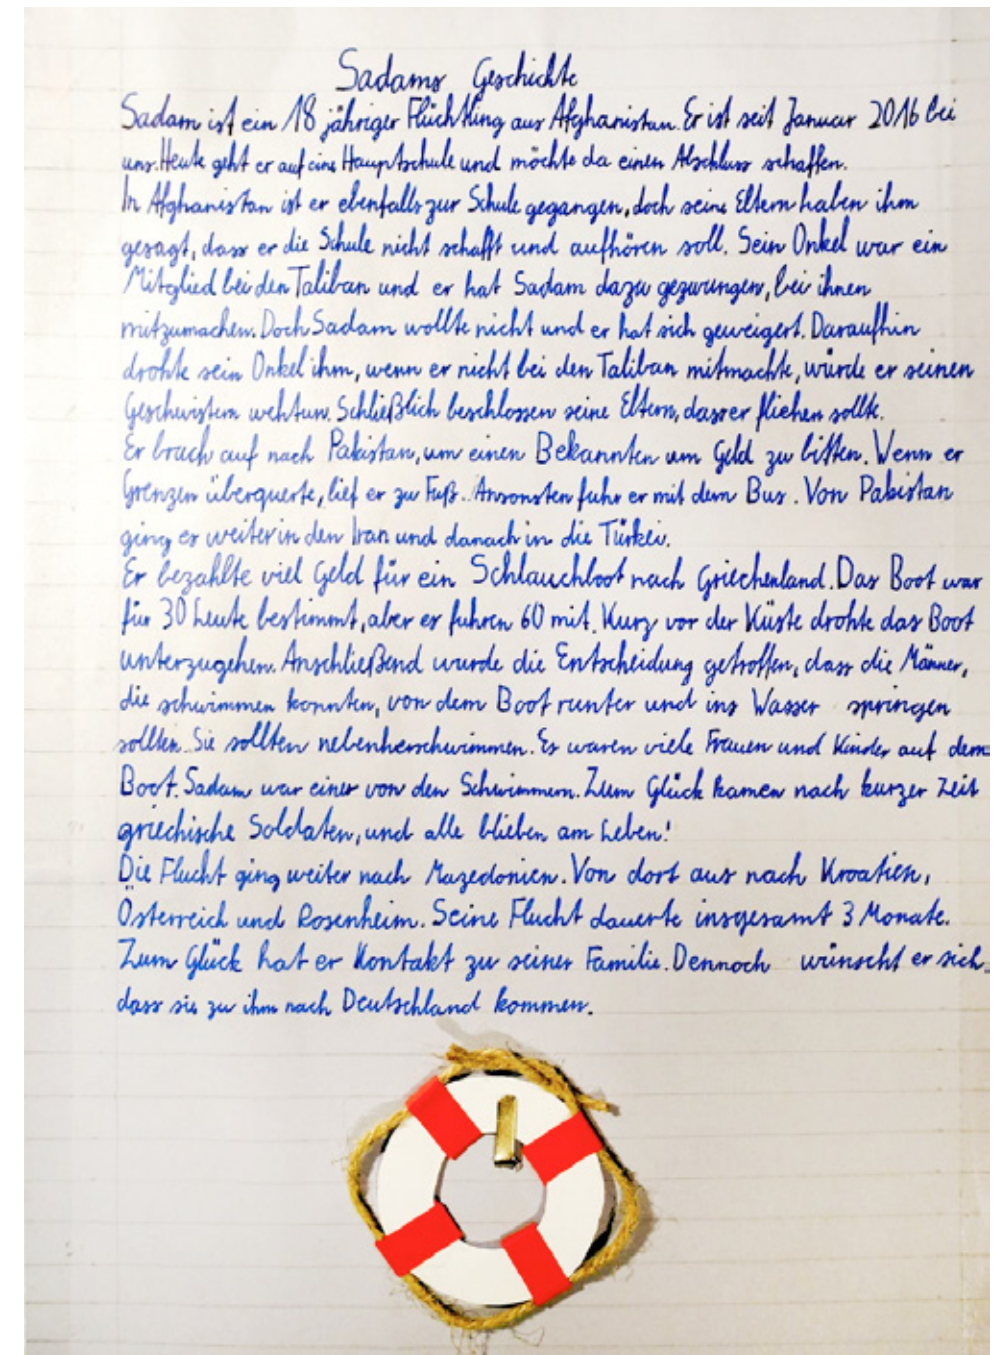 Sadams Geschichte
Sadam ist ein 18 jähriger Flüchtling aus Afghanistan. Er ist seit Januar 2016 bei
uns. Heute geht er auf eine Hauptschule und möchte da einen Abschluss schaffen.
In Afghanistan ist er ebenfalls zur Schule gegangen, doch seine Eltern haben ihm
gesagt, dass er die Schule nicht schafft und aufhören soll. Sein Onkel war ein
Mitglied bei den Taliban und er hat Sadam dazu gezwungen, bei ihnen
mitzumachen. Doch Sadam wollte nicht und er hat sich geweigert. Daraufhin
drohte sein Onkel ihm, wenn er nicht bei den Taliban mitmachte, würde er seinen
Geschwistern wehtun. Schließlich beschlossen seine Eltern, dass er fliehen sollte.
Er brach auf nach Pakistan, um einen Bekannten um Geld zu bitten. Wenn er
Grenzen überquerte, lief er zu Fuß. Ansonsten fuhr er mit dem Bus. Von Pakistan
ging es weiter in den Iran und danach in die Türkei.
Er bezahlte viel Geld für ein Schlauchboot nach Griechenland. Das Boot war
für 30 Leute bestimmt, aber es fuhren 60 mit. Kurz vor der Küste drohte das Boot
unterzugehen. Anschließend wurde die Entscheidung getroffen, dass die Männer,
die schwimmen konnten, von dem Boot runter und ins Wasser springen
sollten. Sie sollten nebenherschwimmen. Es waren viele Frauen und Kinder auf dem
Boot. Sadam war einer von den Schwimmern. Zum Glück kamen nach kurzer Zeit
griechische Soldaten, und alle blieben am Leben!
Die Flucht ging weiter nach Mazedonien. Von dort aus nach Kroatien,
Österreich und Rosenheim. Seine Flucht dauerte insgesamt 3 Monate.
Zum Glück hat er Kontakt zu seiner Familie. Dennoch wünscht er sich,
dass sie zu ihm nach Deutschland kommen.